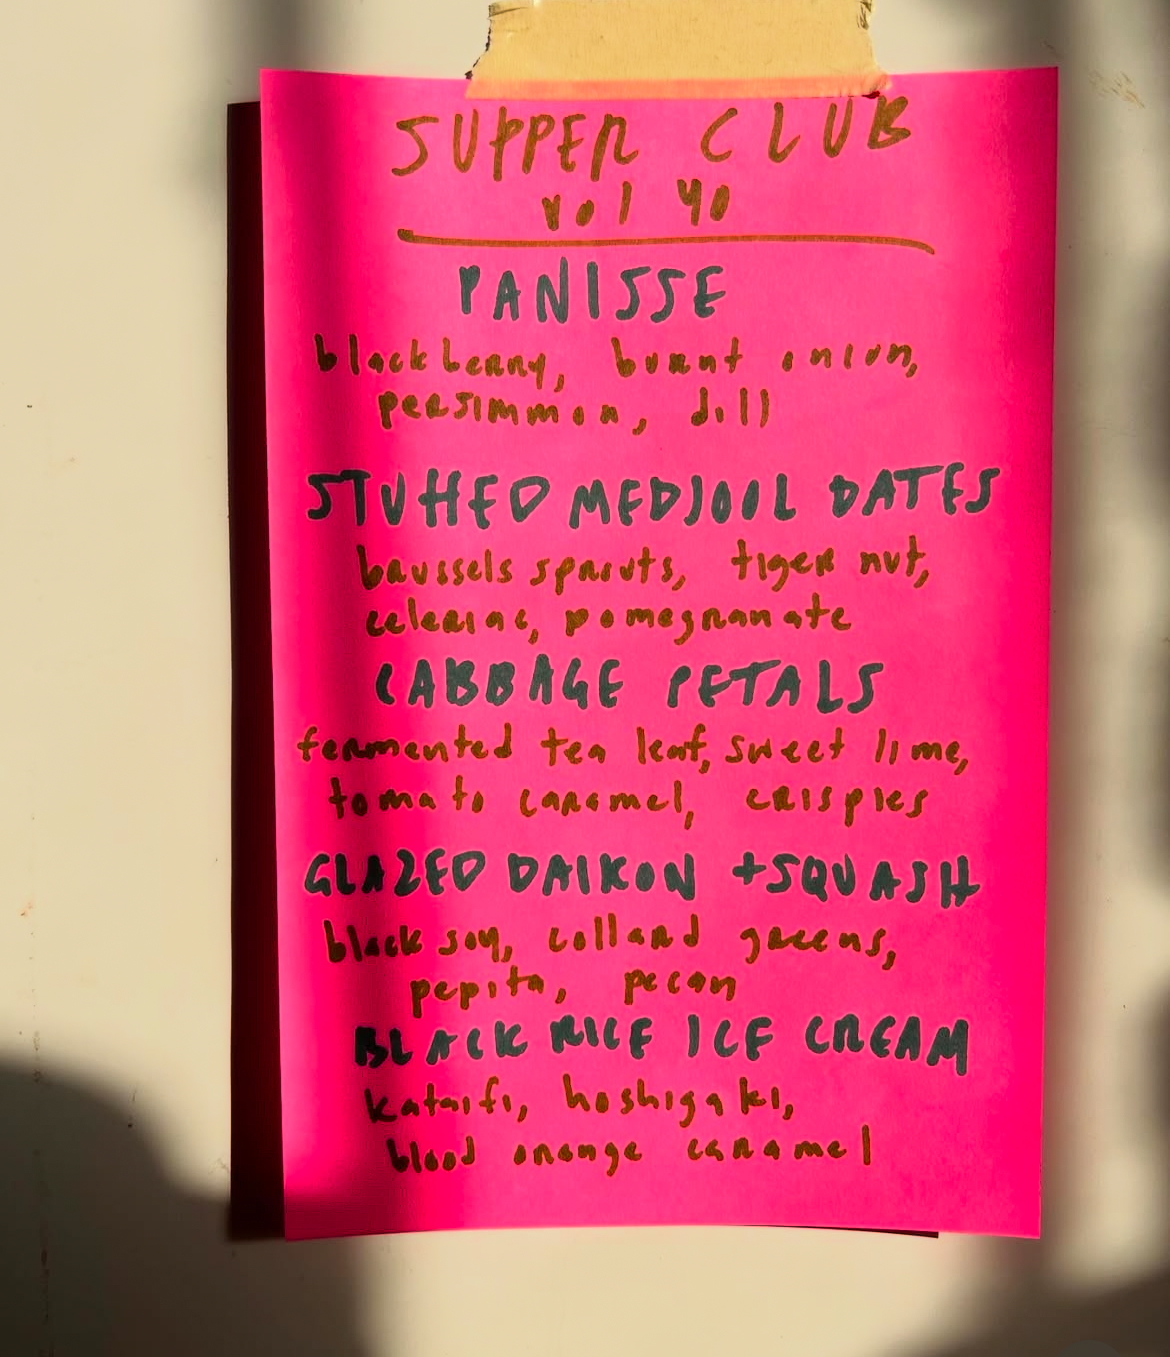 SUPPER CLUB
vol 40
PANISSE
blackberry, burnt onion,
persimmon, dill
STUFFED MEDJOOL DATES
brussels sprouts, tiger nut,
celeriac, pomegranate
CABBAGE PETALS
fermented tea leaf, sweet lime,
tomato caramel, crispies
GLAZED DAIKON +SQUASH
black soy, collard greens,
pepita, pecan
BLACK RICE ICE CREAM
kataifi, hoshigaki,
blood orange caramel